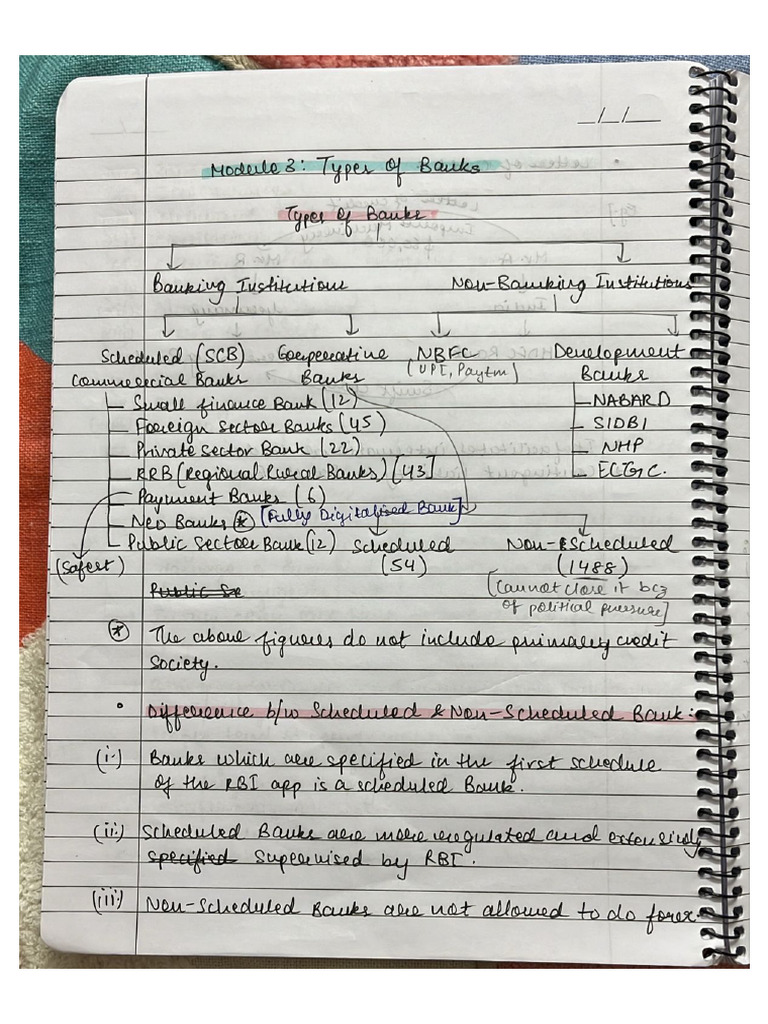 _/_/__
Module 3: Types of Banks
Types of Banks
Banking Institutions Non-Banking Institutions
Scheduled (SCB) Cooperative NBFC Development
Commercial Banks Banks (UPI, Paytm) Banks
Small finance Bank (12) NABARD
Foreign Sector Banks (45) SIDBI
Private Sector Bank (22) NHP
RRB (Regional Rural Banks) [43] ECGC.
Payment Banks (6)
Neo Banks * [Fully Digitalised Bank]
Public Sector Bank (12) Scheduled Non-Scheduled
(Safest) (54) (1488)
Public Se [Cannot close it bcz
of political pressure]
* The above figures do not include primary credit
society.
• Difference b/w Scheduled & Non-Scheduled Bank:
(i.) Banks which are specified in the first schedule
of the RBI app is a scheduled Bank.
(ii) Scheduled Banks are more regulated and extensively
specified Supervised by RBI.
(iii) Non-Scheduled Banks are not allowed to do forex.